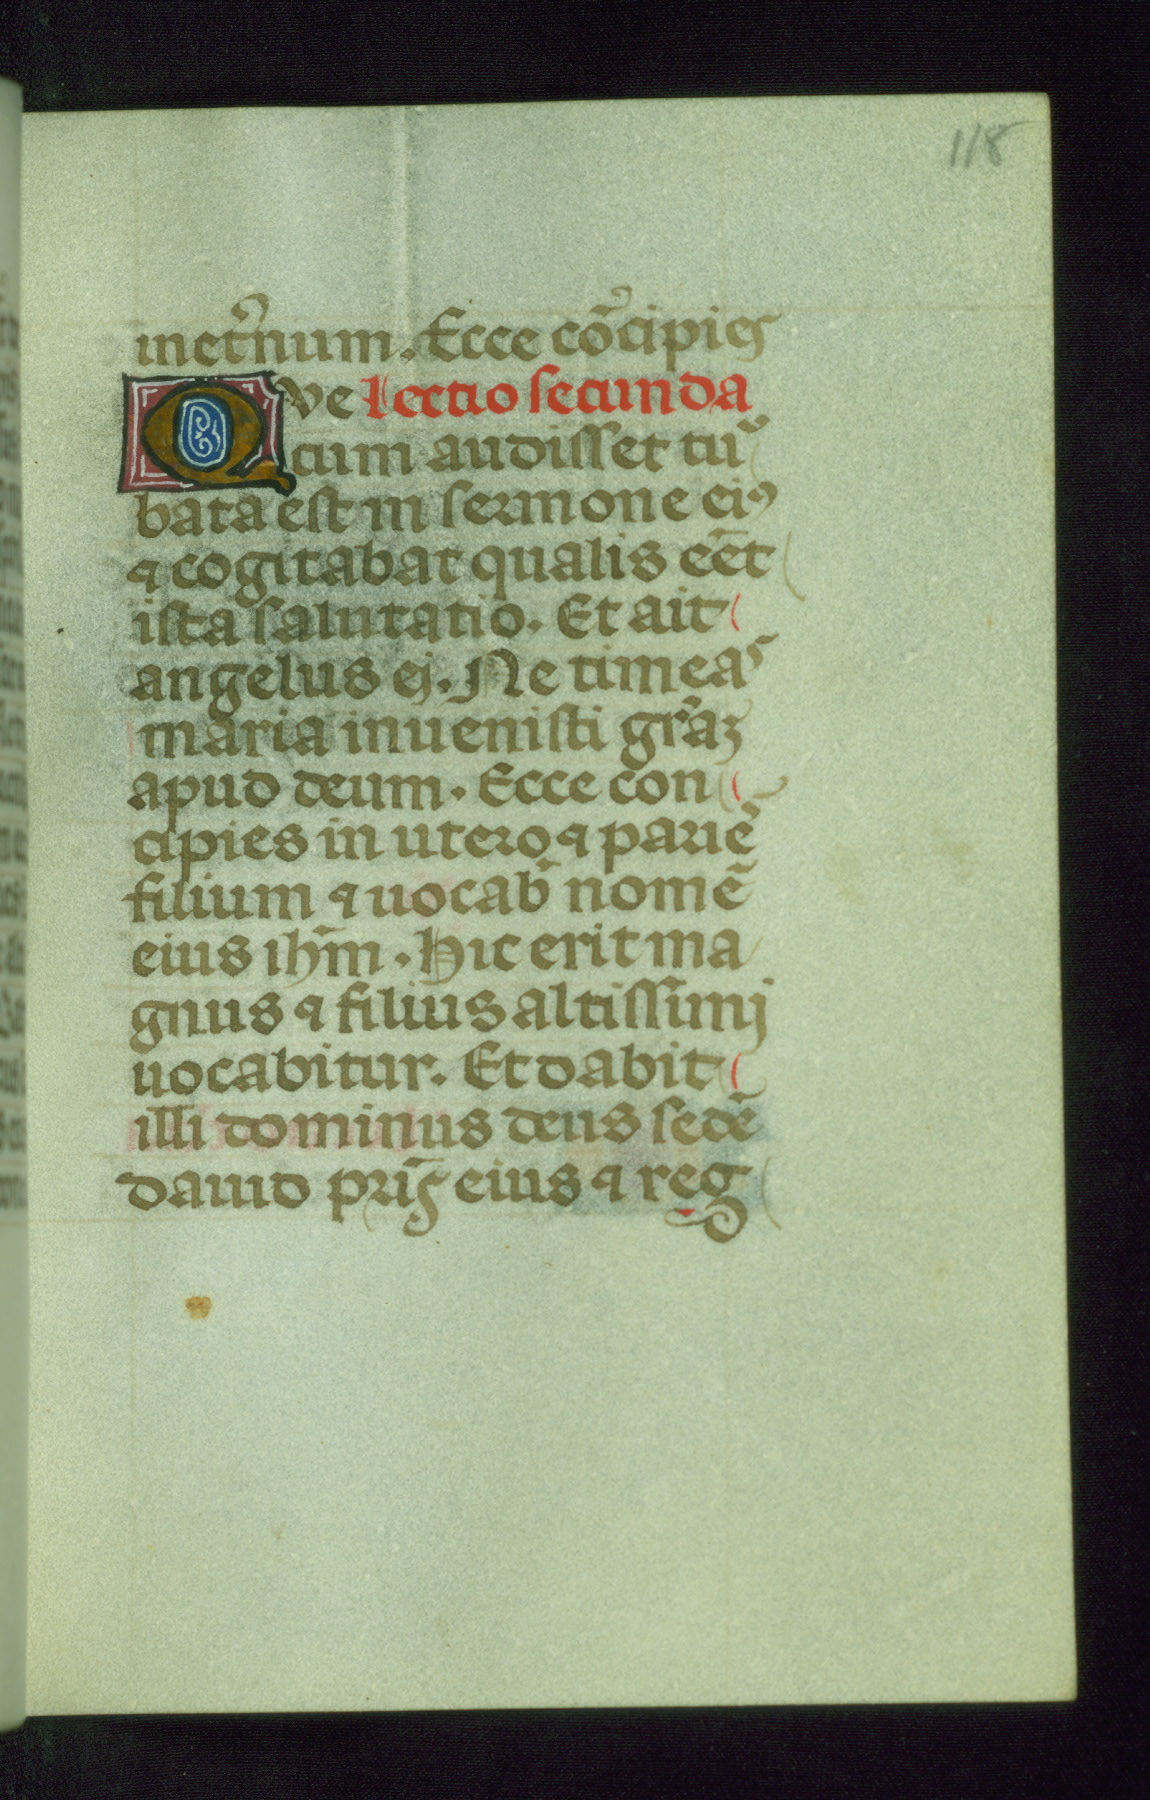 118
inet̃num. Ecce cõcipies
Que Lectio secunda
cum audisset tur̃
bata est in sermone eiꝰ
⁊ cogitabat qualis eēt
ista salutatio. Et ait
angelus ej. Ne timeas
maria inuenisti gr̃aꝫ
apud deum. Ecce con
cipies in utero ⁊ pariẽ
filium ⁊ uocab̃ nomẽ
eius ihm̃. Hic erit ma
gnus ⁊ filius altissimj
uocabitur. Et dabit
illi dominus deus sedẽ
dauid pr̃is eius ⁊ reg